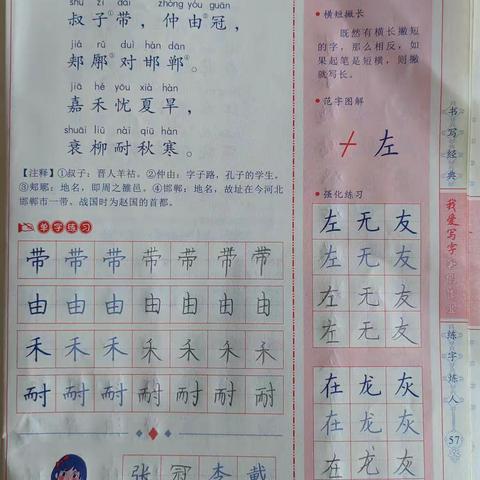 shū zǐ dài zhòng yóu guān
叔子①带，仲由②冠，
jiá fú duì hán dān
郏鄏③对邯郸④。
jiā hé yōu xià hàn
嘉禾忧夏旱，
shuāi liǔ nài qiū hán
衰柳耐秋寒。
【注释】①叔子：晋人羊祜。②仲由：字子路，孔子的学生。
③郏鄏：地名，即周之雒邑。④邯郸：地名，故址在今河北
邯郸市一带，战国时为赵国的首都。
单字练习
带 带 带 带 带 带 带
由 由 由 由 由 由 由
禾 禾 禾 禾 禾 禾 禾
耐 耐 耐 耐 耐 耐 耐
张 冠 李 戴
横短撇长
既然有横长撇短
的字，那么相反，如
果起笔是短横，则撇
就写长。
范字图解
左
强化练习
左 无 友
左 无 友
左 无 友
左 无 友
在 龙 灰
在 龙 灰
在 龙 灰
书写经典
我爱写字
练字炼人
57